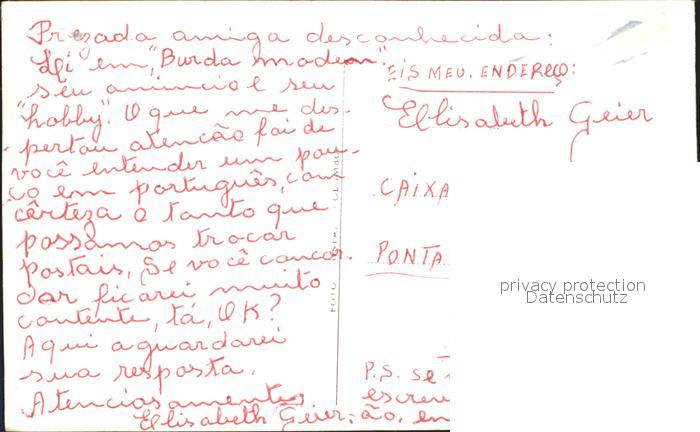 Prezada amiga desconhecida:
Li em "Burda modeon"
seu anúncio e seu
"hobby". O que me des-
pertou atencão foi de
você entender um pou-
co em português, com
cêrteza o tanto que
possamos trocar
postais. Se você concor-
dar ficarei muito
contente, tá, OK?
Aqui aguardarei
sua resposta.
Atenciosamente
Ellisabeth Geier;
EIS MEU ENDEREÇO:
Ellisabeth Geier
CAIXA
PONTA
privacy protection
Datenschutz
P.S. se
escrev
ão, en